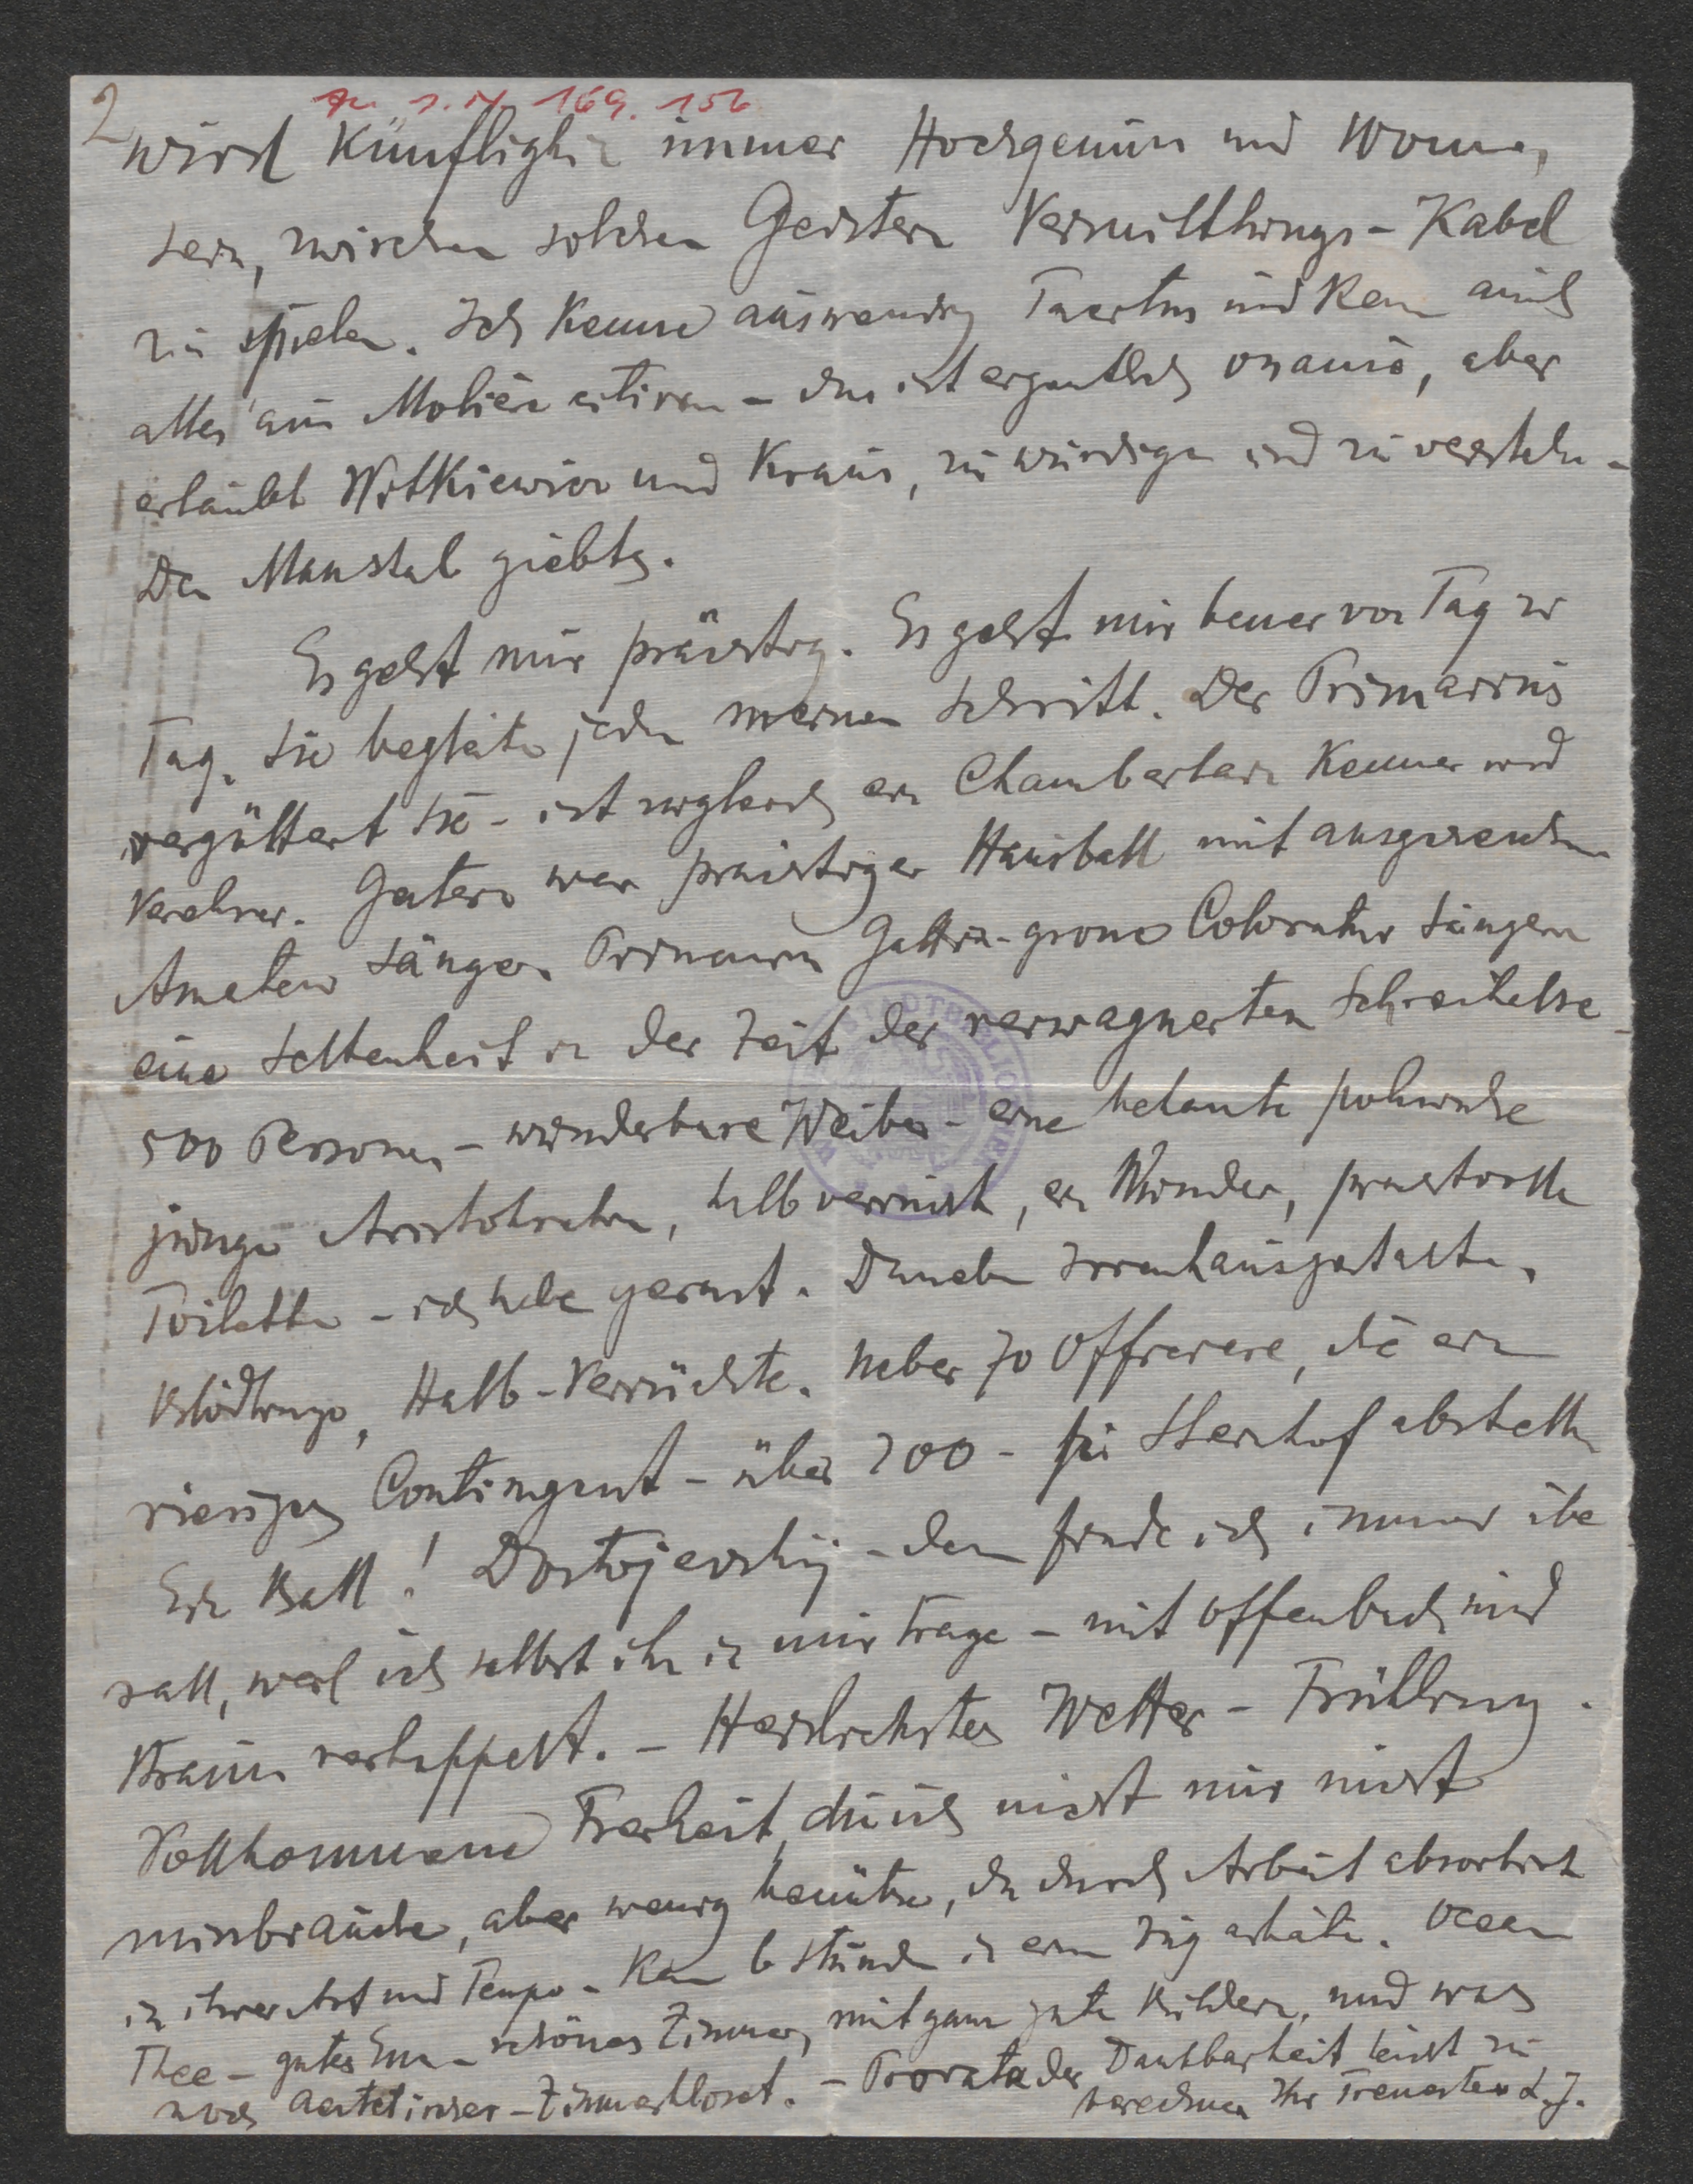 2
169. 156
wird künftighin immer Hochgenuss und Wonne,
sein, zwischen solchen Geistern Vermittlungs-Kabel
zu spielen. Ich kenne auswendig Tacitus und kann auch
alles aus Molière citiren - das ist eigentlich onanie, aber
erlaubt Witkiewicz und Kraus, zu würdigen und zu verstehn -
Den Masstab giebts.
Es geht mir prächtig. Es geht mir besser von Tag zu
Tag. Sie begleiten jeden meinen Schritt. Der Primarius
vergöttert Sie - ist zugleich ein Chamberlain Kenner und
Verehrer. Gestern war prächtiger Hausball mit ausgezeichn
Amateur Sänger. Primarius Gattin - grosse Coloratur Sängerin
eine Seltenheit in der Zeit der verwagnerten Schreihälse -
500 Personen - wunderbare Weiber - eine bekannte polnische
junge Aristokratin, halb verrückt, ein Wunder, prachtvolle
Toilette - ich habe gerast. Daneben Irrenhausgestalten,
Blödlinge, Halb-Verrückte. Ueber 70 Offiziere, die ein
riesiges Contingent - über 200 - für Steinhof abstellen
Ein Ball! Dostojevskij - den finde ich immer übe
rall, weil ich selbst ihn in mir trage - mit Offenbach und
Kraus verkuppelt. - Herrlichstes Wetter - Frühling.
Vollkommene Freiheit, die ich nicht nur nicht
missbrauche, aber wenig benütze, da durch Arbeit absorbirt
in ihrer Art und Tempo - Kann 6 Stunden in einem Zug arbeiten. Ocean
Thee - gutes Essen - schönes Zimmer, mit ganz guten Bildern, und was
noch Aestetischer - Zimmerkloset. - Prorata der Dankbarkeit leicht zu
berechnen Ihr Treuester L. J.
STADTBIBLIOTHEK